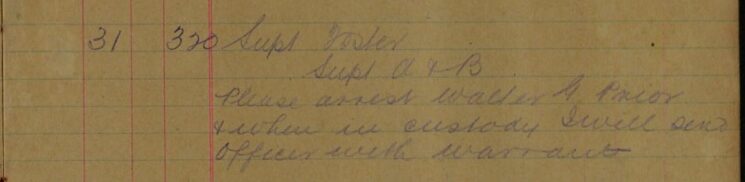 31 320 Supt Foster
Supt A & B
Please arrest Walter G Prior
& when in custody I will send
Officer with warrant